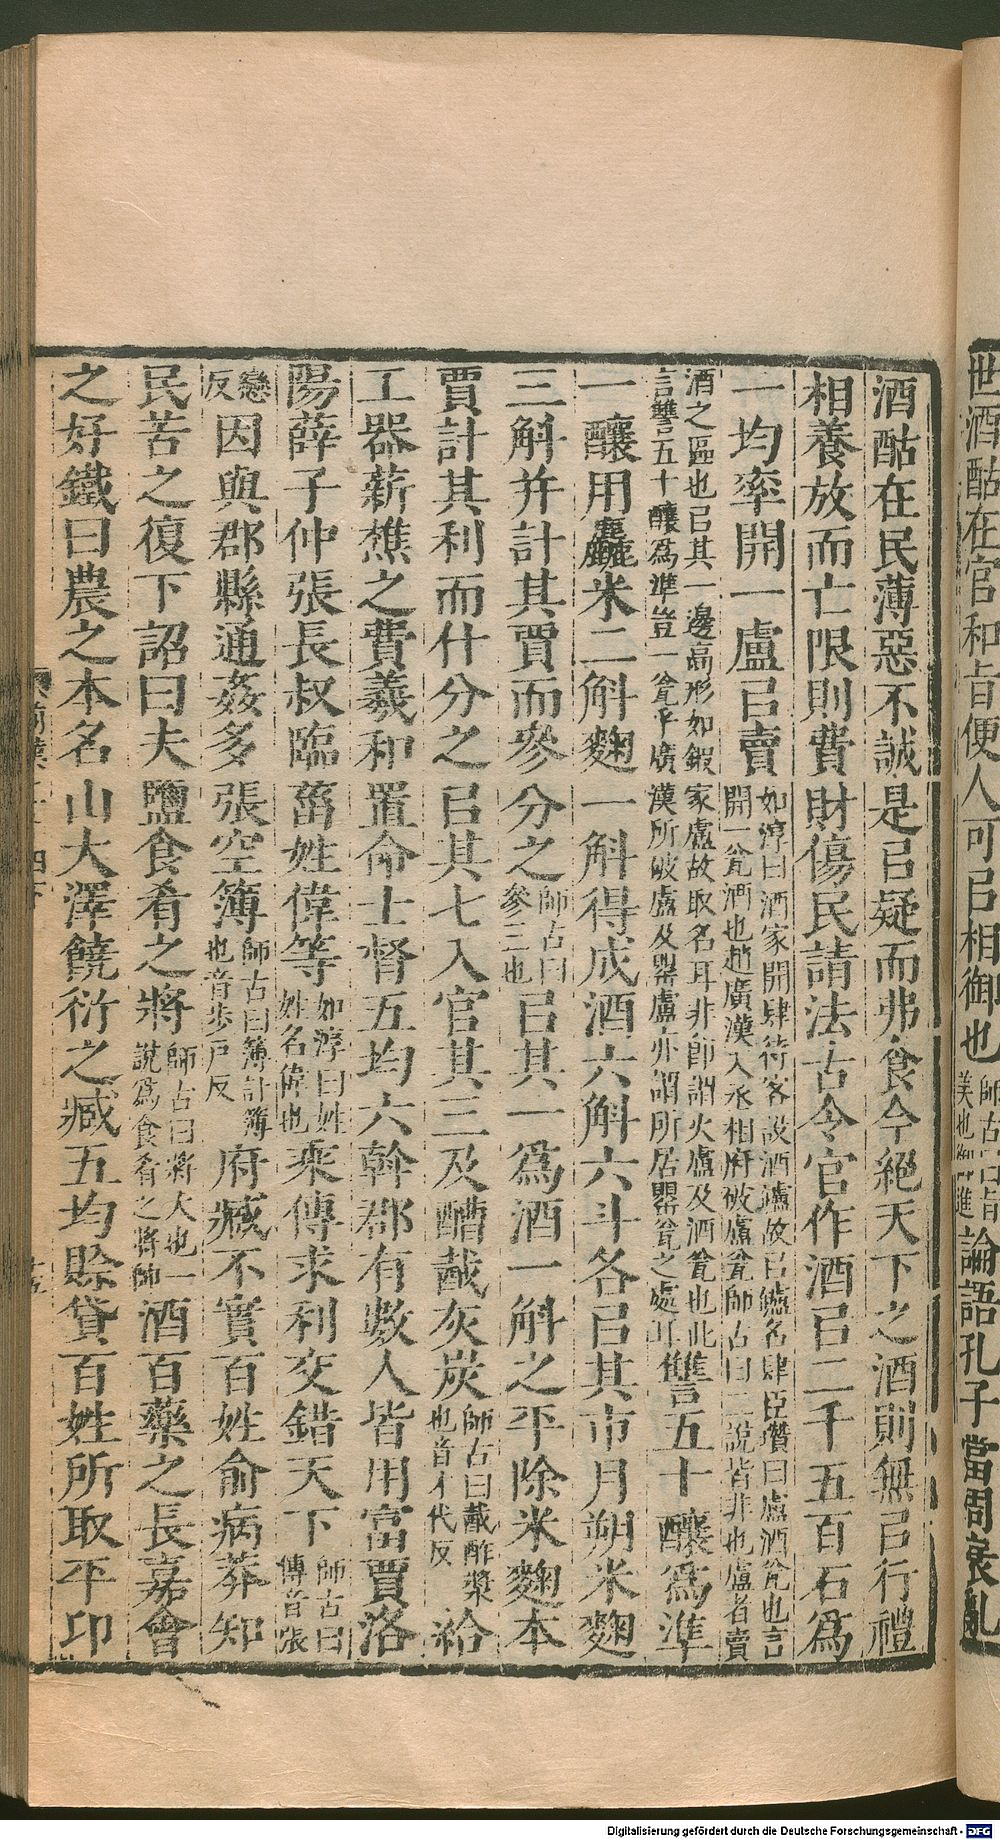 世酒酤在官和旨便人可㠯相御也師古曰旨美也御進論語孔子當周衰亂
酒酤在民薄惡不誠是㠯疑而弗食今絕天下之酒則無㠯行禮
相養放而亡限則費財傷民請法古令官作酒㠯二千五百石爲
一均率開一盧㠯賣如淳曰酒家開肆待客設酒鑪故㠯鑪名肆臣瓚曰盧酒瓮也言開一瓮酒也趙廣漢入丞相府破盧瓮師古曰二說皆非也盧者賣
酒之區也㠯其一邊高形如鍜家盧故取名耳非即謂火盧及酒瓮也此言讐五十釀爲準豈一瓮乎廣漢所破盧及罌盧亦謂所居罌瓮之處耳讎五十釀爲準
一釀用麤米二斛麴一斛得成酒六斛六斗各㠯其市月朔米麴
三斛并計其賈而參分之師古曰參三也㠯其一爲酒一斛之平除米麴本
賈計其利而什分之㠯其七入官其三及醩酨灰炭師古曰酨酢漿也音才代反給
工器薪樵之費羲和置命士督五均六幹郡有數人皆用富賈洛
陽薛子仲張長叔臨菑姓偉等如淳曰姓姓名偉也乘傳求利交錯天下師古曰傳音張
戀反因與郡縣通姦多張空簿師古曰簿計簿也音步戶反府臧不實百姓俞病莽知
民苦之復下詔曰夫鹽食肴之將師古曰將大也一說爲食肴之將帥酒百藥之長嘉會
之好鐵曰農之本名山大澤饒衍之臧五均賒貸百姓所取平卬
Digitalisierung gefördert durch die Deutsche Forschungsgemeinschaft - DFG